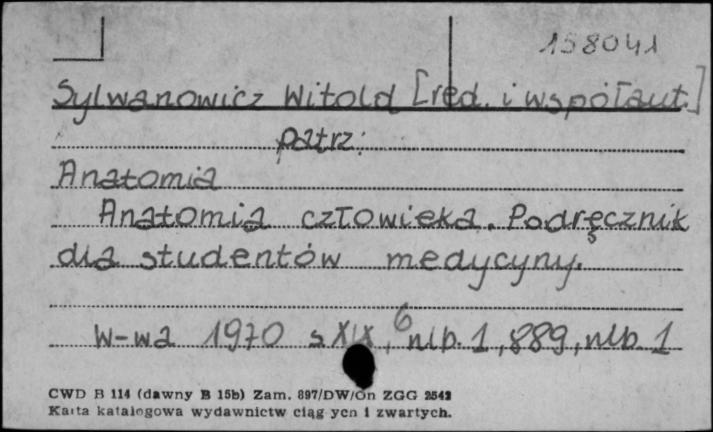 158041
Sylwanowicz Witold [red. i współaut.]
patrz:
Anatomia
Anatomia człowieka. Podręcznik
dla studentów medycyny.
W-wa 1970 s XIX, 6 nlb. 1, 889, nlb. 1
CWD B 114 (dawny B 15b) Zam. 897/DW/On ZGG 2542
Karta katalogowa wydawnictw ciąg ycn i zwartych.